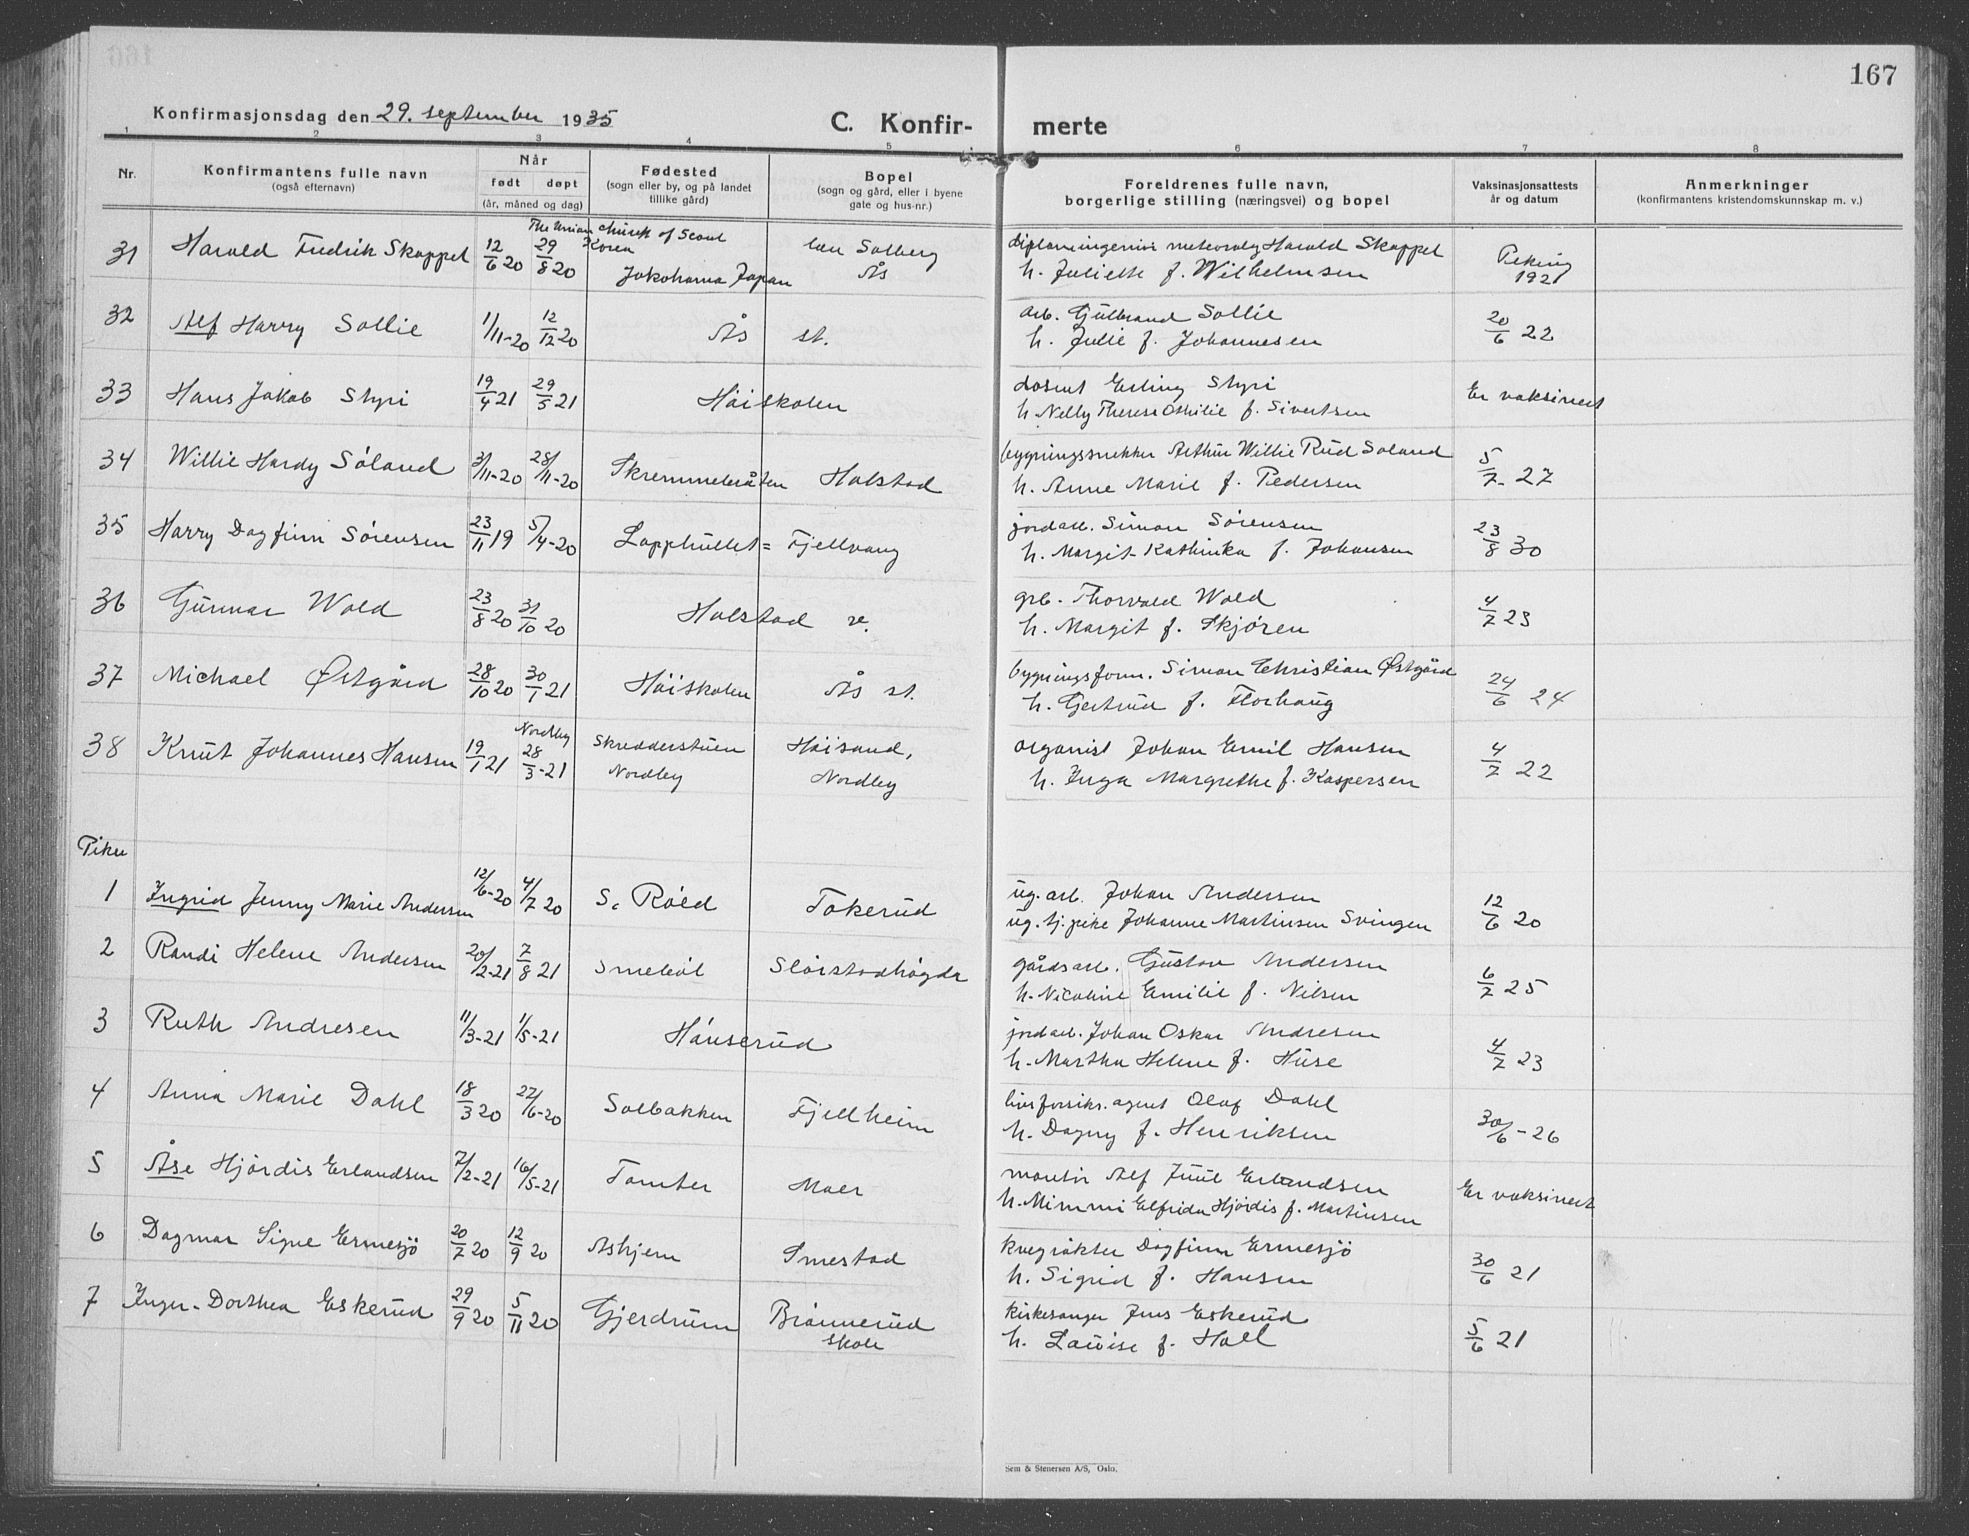 167
Konfirmasjonsdag den 29. september 1935
C. Konfir- merte
1 2 3 4 5 6 7 8
Nr.
Konfirmantens fulle navn
(også efternavn)
Når
født døpt
(år, måned og dag)
Fødested
(sogn eller by, og på landet
tillike gård)
Bopel
(sogn og gård, eller i byene
gate og hus-nr.)
Foreldrenes fulle navn,
borgerlige stilling (næringsvei) og bopel
Vaksinasjonsattests
år og datum
Anmerkninger
(konfirmantens kristendomskunnskap m. v.)
The Union church of Seoul
Korea
31 Harald Fredrik Skappel 12/6 20 29/8 20 Jokohama Japan Solberg Ås diplomingeniør Harald Skappel Peking
h. Juliette f. Wilhelmsen 1921
32 Alf Harry Sollie 11/11-20 12/12 20 Ås st. arb. Gulbrand Sollie 20/6 22
h. Julie f. Johannesen
33 Hans Jakob Styri 19/4 21 29/5 21 Høiskolen dosent Erling Styri Er vaksinert
h. Nelly Therese Othilie f. Sivertsen
34 Willie Hardy Søland 3/11-20 28/11-20 Skremmeråten Holstad bygningssnekker Arthur Willie Rud Søland 5/7-27
h. Anne Marie f. Pedersen
35 Harry Dagfinn Sørensen 23/11 19 5/4-20 Lapphullet = Fjellvang jordarb. Simon Sørensen 23/8 30
h. Margit Kathinka f. Johansen
36 Gunnar Wold 23/8 20 31/10 20 Holstad v. grb. Thorvald Wold 4/7 23
h. Margit f. Skjøren
37 Michael Østgård 28/10 20 30/1 21 Høiskolen Ås st. bygningsform. Simon Christian Østgård 24/6 24
h. Gertrud f. Florhaug
Nordby
38 Knut Johannes Hansen 19/1 21 28/3-21 Skredderstuen Høisand, organist Johan Emil Hansen 4/7 22
Nordby Nordby h. Inga Margrethe f. Kaspersen
Piker
1 Ingrid Jenny Marie Andersen 12/6-20 4/7 20 S. Røed Tokerud ug. arb. Johan Andersen 12/6 20
ug. tj.pike Johanne Martinsen Svingen
2 Randi Helene Andersen 20/2-21 7/8 21 Smebøl Slørstadhøgda gårdsarb. Gustav Andersen 6/7 25
h. Nicoline Emilie f. Nilsen
3 Ruth Andresen 11/3-21 1/5-21 Hønserud jordarb. Johan Oskar Andresen 4/7 23
h. Martha Helene f. Huse
4 Anna Marie Dahl 18/3 20 27/6-20 Solbakken Fjellheim livsforsikr.agent Olaf Dahl 30/6-26
h. Dagny f. Henriksen
5 Åse Hjørdis Erlandsen 7/2-21 16/5-21 Tomter Moer montør Alf Juul Erlandsen Er vaksinert
h. Mimmi Elfrida Hjørdis f. Martinsen
6 Dagmar Signe Ermesjø 20/7 20 12/9 20 Askjem Smestad kvegrøkter Dagfinn Ermesjø 30/6 21
h. Sigrid f. Hansen
7 Inger-Dorthea Eskerud 29/9 20 5/11 20 Gjerdrum Brønnerud kirkesanger Jens Eskerud 5/6 21
skole h. Louise f. Holl
Sem & Stenersen A/S, Oslo.